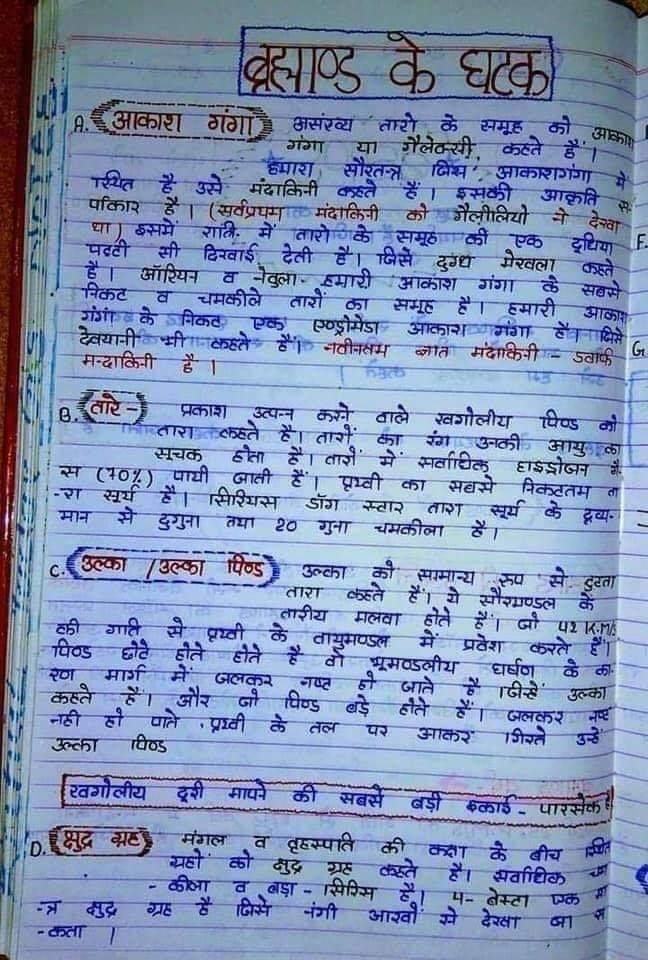 ब्रह्माण्ड के घटक
A. आकाश गंगा असंख्य तारो के समूह को आकाश
गंगा या गैलेक्सी, कहते हैं।
हमारा सौरतन्त्र जिस आकाशगंगा में
स्थित है उसे मंदाकिनी कहते हैं। इसकी आकृति स-
र्पाकार है। (सर्वप्रथम मंदाकिनी को गैलीलियो ने देखा
था) इसमें रात्रि में तारो के समूह की एक दूधिया
पट्टी सी दिखाई देती है। जिसे दुग्ध मेखला कहते
है। ऑरियन व नेबुला- हमारी आकाश गंगा के सबसे
निकट व चमकीले तारों का समूह है। हमारी आकाश
गंगा के निकट एक एण्ड्रोमेडा आकाश गंगा है। जिसे
देवयानी भी कहते हैं। नवीनतम ज्ञात मंदाकिनी - ड्वार्फ
मन्दाकिनी है।
B. तारे- प्रकाश उत्पन्न करने वाले खगोलीय पिण्ड को
तारा कहते है। तारों का रंग उनकी आयु का
सूचक होता है। तारों में सर्वाधिक हाइड्रोजन गै-
स (70%) पायी जाती हैं। पृथ्वी का सबसे निकटतम ता
-रा सूर्य है। सिरियस डॉग स्टार तारा सूर्य के द्रव्य-
मान से दुगुना तथा 20 गुना चमकीला है।
C. उल्का / उल्का पिण्ड उल्का को सामान्य रूप से टुटता
तारा कहते हैं। ये सौरमण्डल के
तारीय मलवा होते हैं। जो 42 K.M/S
की गति से पृथ्वी के वायुमण्डल में प्रवेश करते हैं।
पिण्ड छोटे होते होते है वो भूमण्डलीय घर्षण के का-
रण मार्ग में जलकर नष्ट हो जाते है। जिन्हें उल्का
कहते हैं। और जो पिण्ड बड़े होते हैं। जलकर नष्ट
नही हो पाते पृथ्वी के तल पर आकर गिरते उन्हें
उल्का पिण्ड
खगोलीय दूरी मापने की सबसे बड़ी इकाई - पारसेक है
D. क्षुद्र ग्रह मंगल व वृहस्पति की कक्षा के बीच स्थित
ग्रहों को क्षुद्र ग्रह कहते हैं। सर्वाधिक चम
-कीला व बड़ा - सिरिस है। 4- बेस्टा एक मा
-त्र क्षुद्र ग्रह है जिसे नंगी आखों से देखा जा स
-कता।
F.
G